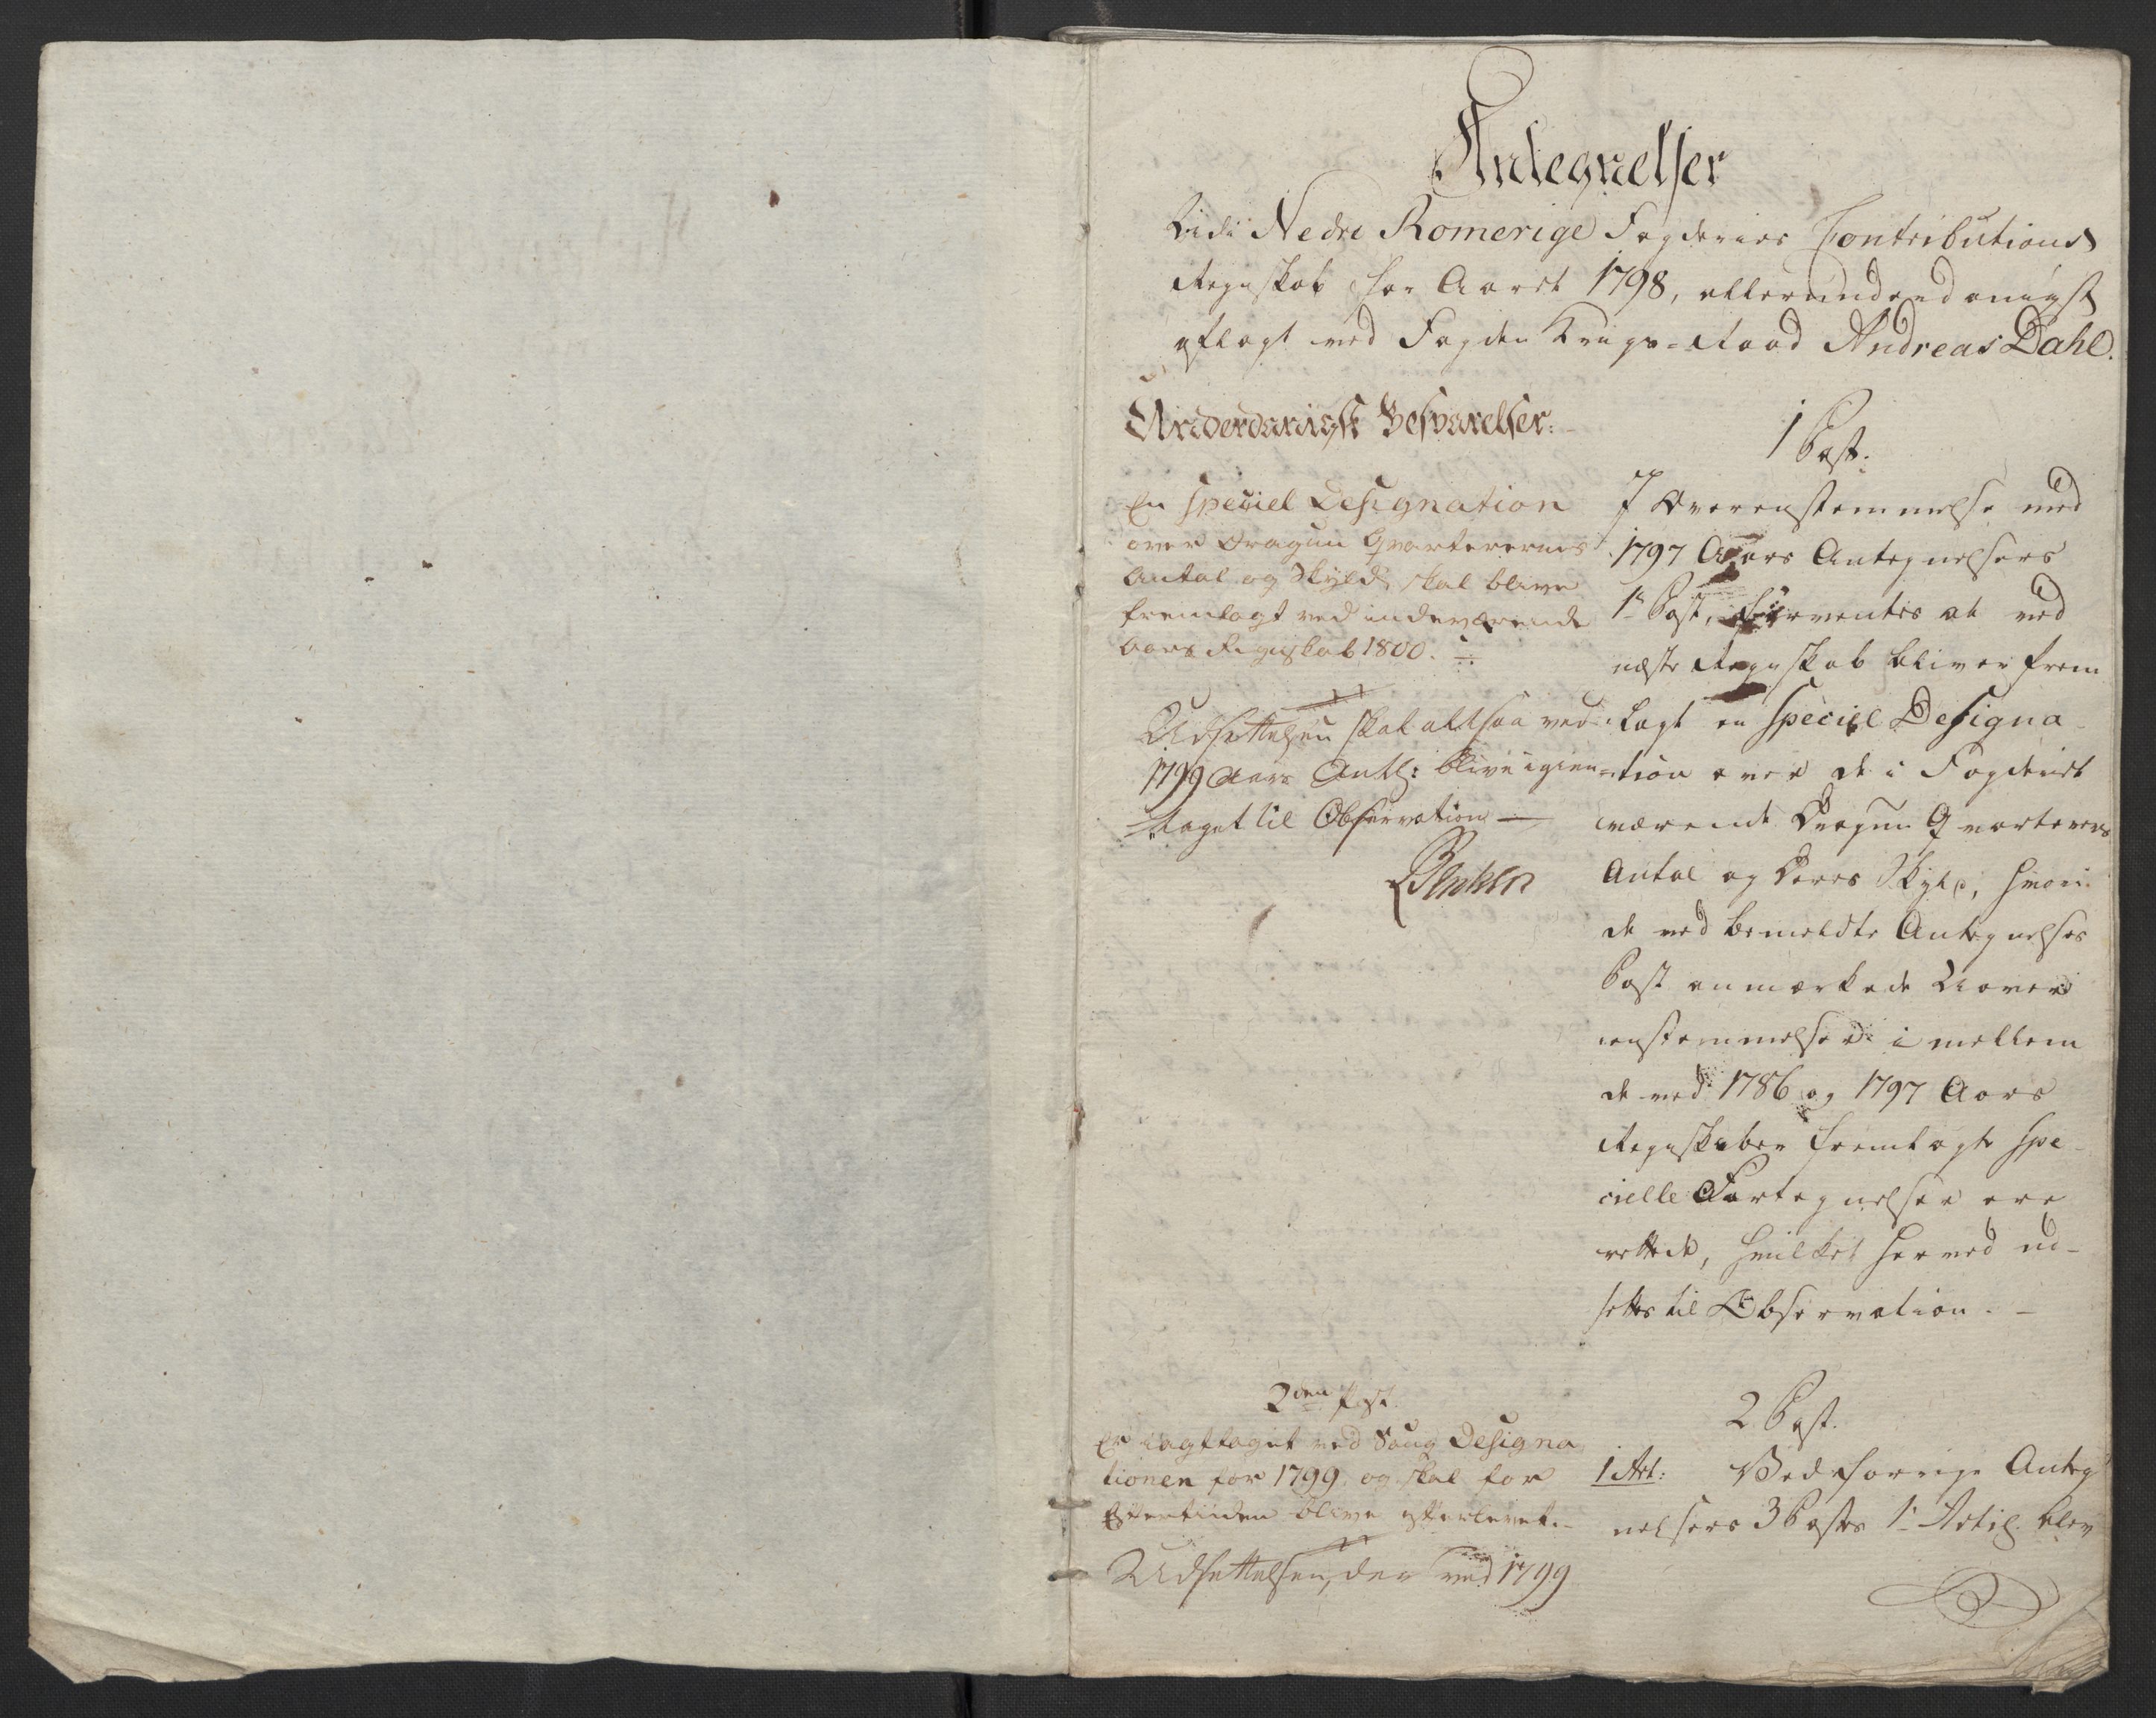 Antegnelser
Ved Nedre Romerige Fogderies Contributions
Regnskab for Aaret 1798, allerunderdanigst
aflagt ved Fogden Krigs-Raad Andreas Dahl.
Underdanigst Besvarelser:
En speciel Designation
over Dragun Qvarterernes
Antal og Skyld, skal blive
fremlagt ved indeværende
Aars Regnskab 1800.
Udsættelsen skal altsaa ved
1799 Aars Antg: blive igien-
taget til Observation —
1 Post.
I Overensstemmelse med
1797 Aars Antegnelsers
1te Post, forventes at ved
næste Regnskab bliver frem
lagt en speciel Designa-
-tion over de i Fogderiet
værende Dragun Qvarterers
Antal og deres Skyld, hvori
de ved bemeldte Antegnelses
Post anmærkede Uover
eenstemmelser i mellem
de ved 1786 og 1797 Aars
Regnskaber fremlagte spe-
cielle Fortegnelser ere
rettede, hvilket herved ud-
settes til Observation. –
2den Post.
Er iagttaget ved Saug Designa
tionen for 1799 og skal for
Eftertiden blive efterlevet. –
Udsættelsen, der ved 1799
2 Post.
1 Art: Ved forrige Anteg
nelsers 3 Postes 1te Artic. blev